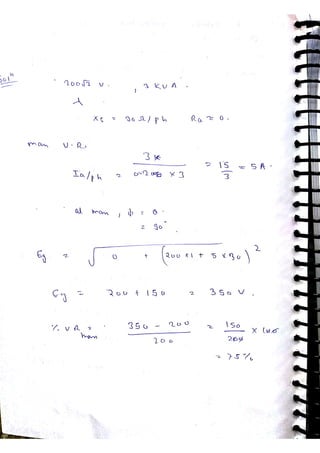 soln
200√3 V. , 3 KVA.
⅄
Xs = 30 Ω/ph Ra = 0.
max V.R.
Ia/ph = 3 / 0.200 × 3 = 15/3 = 5A.
at max, ψ = θ
= 90°
Eg = √0 + (200×1 + 5×30)²
Eg = 200 + 150 = 350 V.
% VR max = 350 - 200 / 200 = 150 / 200 × 100
= 75%